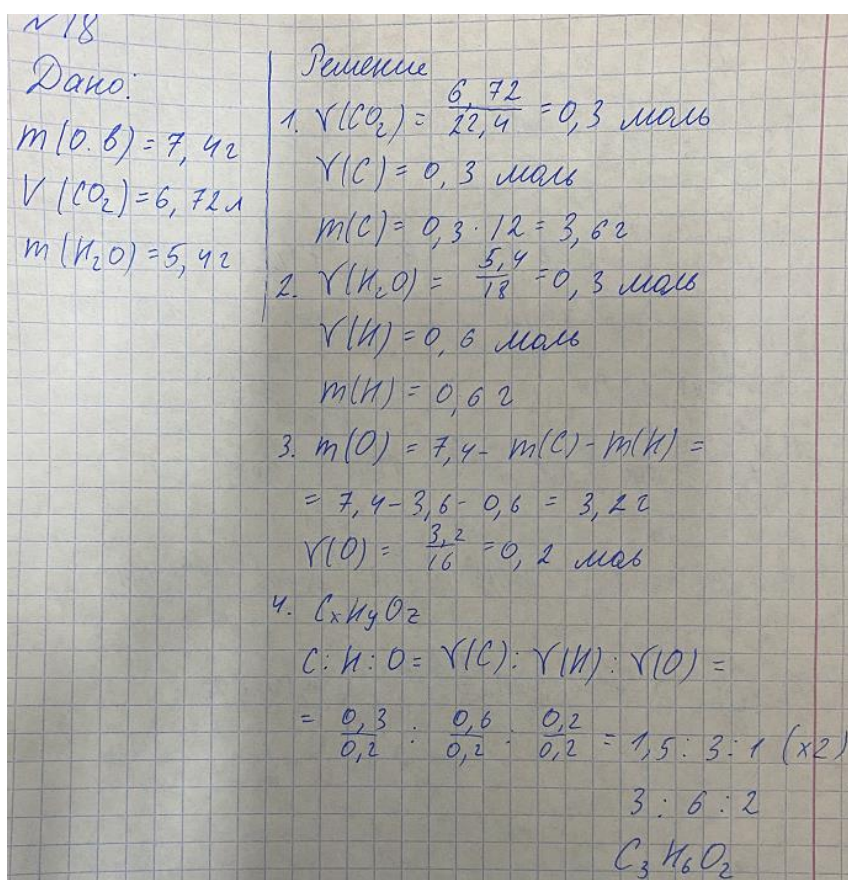 №18
Дано:
m(О.в) = 7,4г
V(CO₂) = 6,72л
m(H₂O) = 5,4г
Решение
1. γ(CO₂) = 6,72/22,4 = 0,3 моль
γ(C) = 0,3 моль
m(C) = 0,3 · 12 = 3,6г
2. γ(H₂O) = 5,4/18 = 0,3 моль
γ(H) = 0,6 моль
m(H) = 0,6 г
3. m(O) = 7,4 - m(C) - m(H) =
= 7,4 - 3,6 - 0,6 = 3,2 г
γ(O) = 3,2/16 = 0,2 моь
4. CxHyOz
C : H : O = γ(C) : γ(H) : γ(O) =
= 0,3/0,2 : 0,6/0,2 : 0,2/0,2 = 1,5 : 3 : 1 (x2)
3 : 6 : 2
C₃H₆O₂